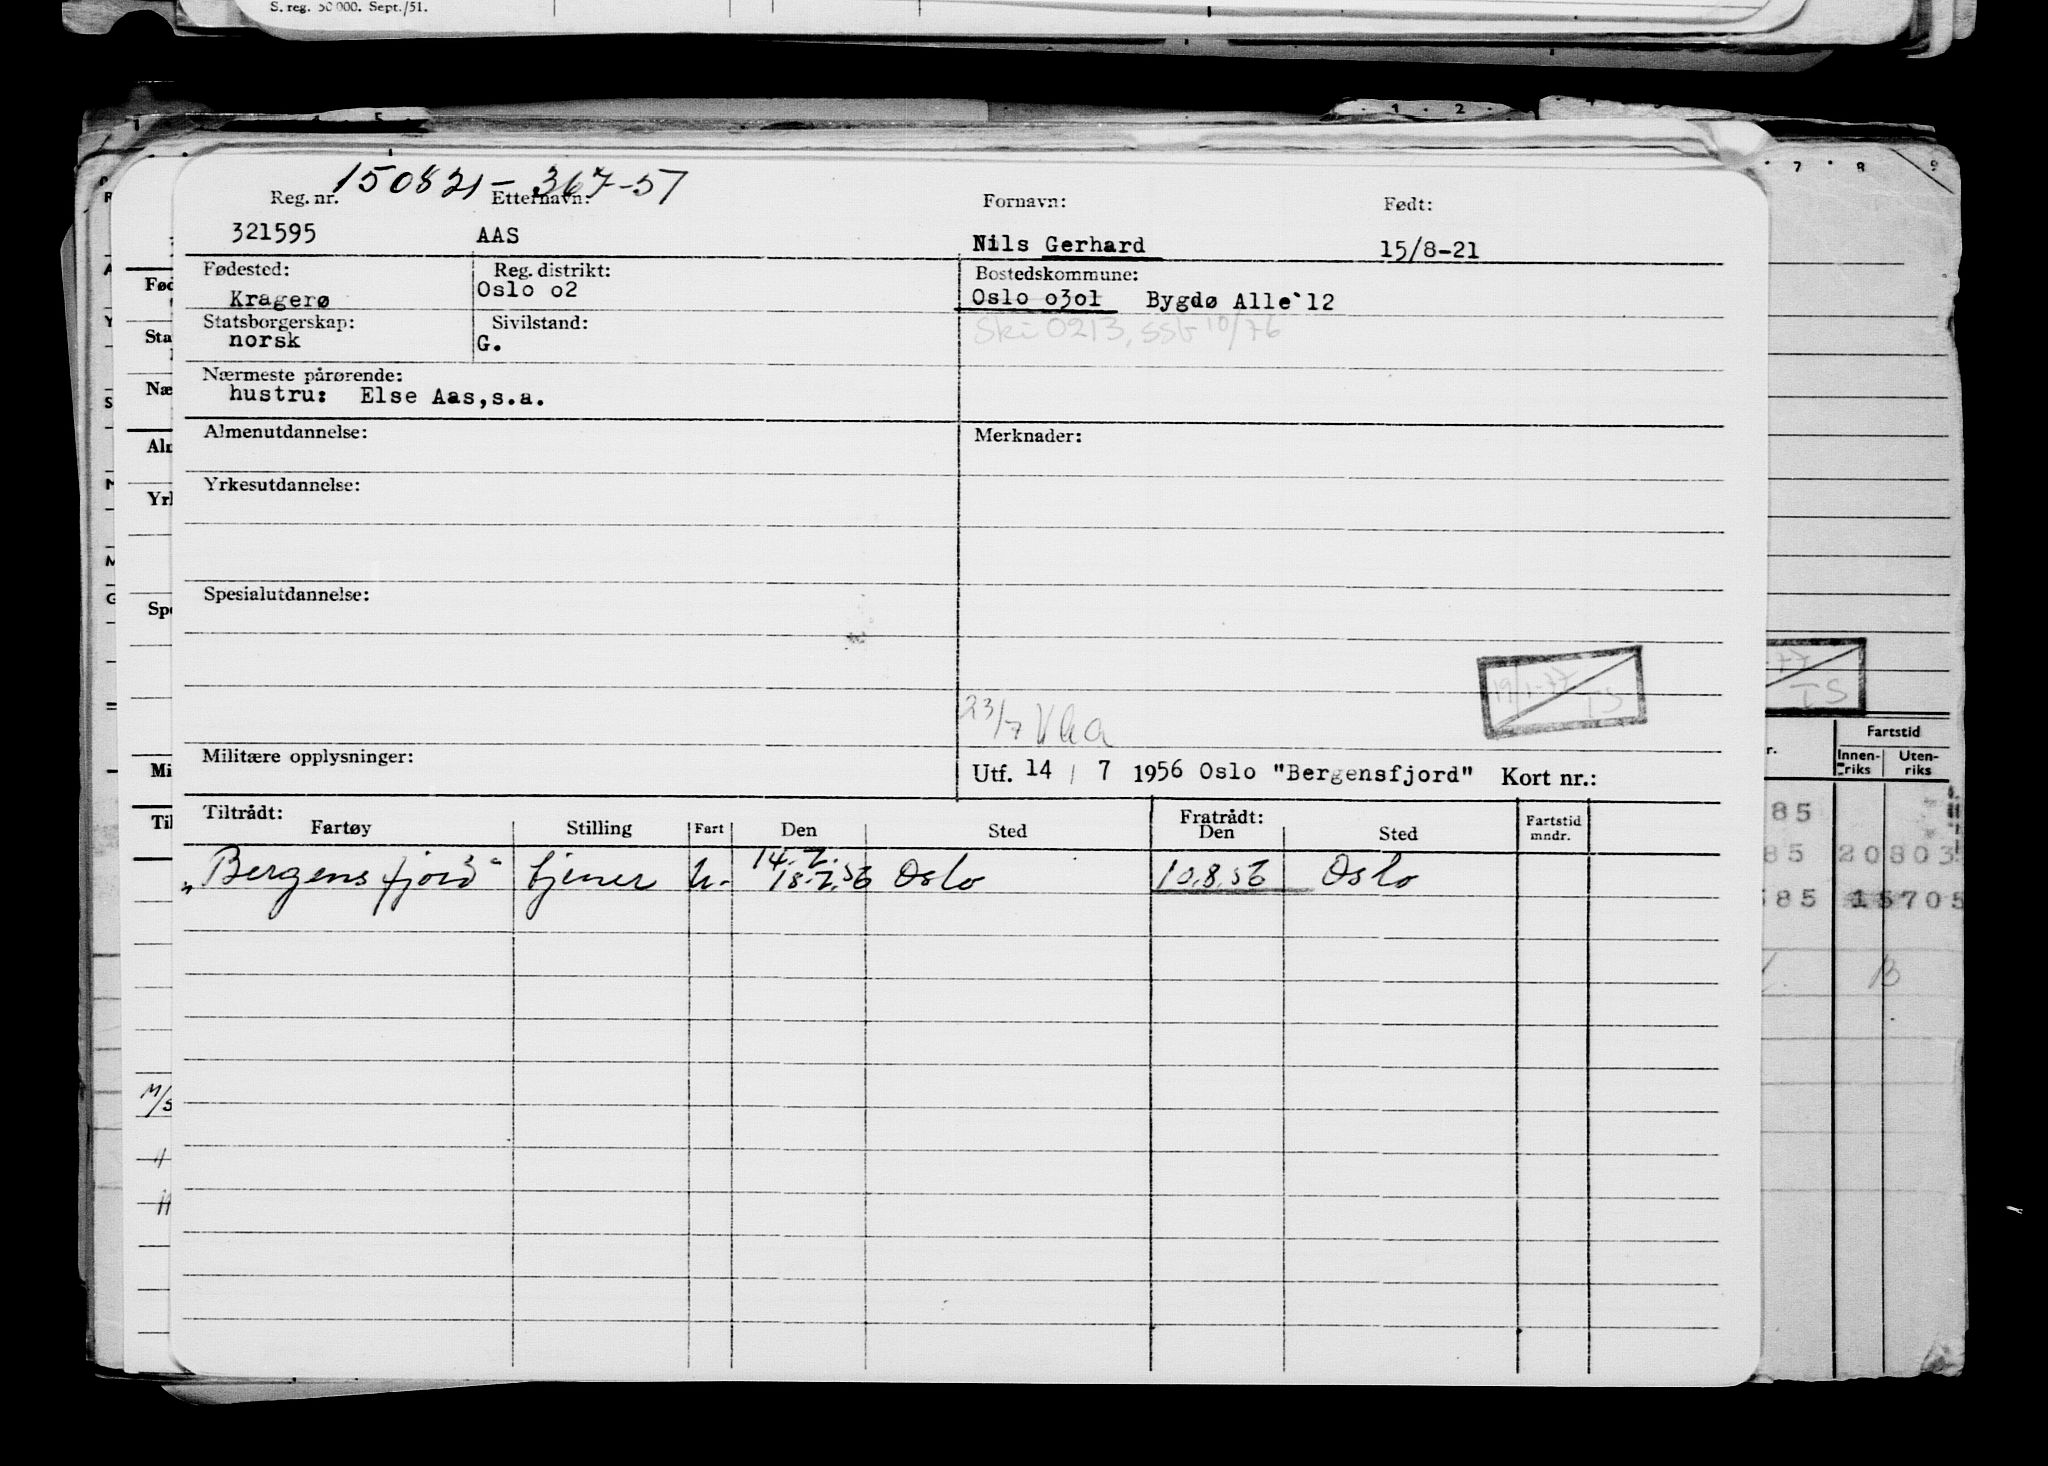 S. reg. 50 000. Sept./51.
150821-367-57
Reg. nr. Etternavn: Fornavn: Født:
321595 AAS Nils Gerhard 15/8-21
Fødested: Reg. distrikt: Bostedskommune:
Kragerø Oslo o2 Oslo o3o1 Bygdø Alle`12
Statsborgerskap: Sivilstand: Ski 0213, SSb 10/76
norsk G.
Nærmeste pårørende:
hustru: Else Aas,s.a.
Almenutdannelse: Merknader:
Yrkesutdannelse:
Spesialutdannelse:
19/1-77 TS
23/7
Militære opplysninger: Utf. 14 / 7 1956 Oslo "Bergensfjord" Kort nr.:
Tiltrådt: Fratrådt:
Fartøy Stilling Fart Den Sted Den Sted Fartstid mndr.
14.7.
"Bergensfjord" tjener u. 18.7.56 Oslo 10.8.56 Oslo
Fartstid
Innen-riks Uten-riks
85
85 20803
585 15705
B
M/S